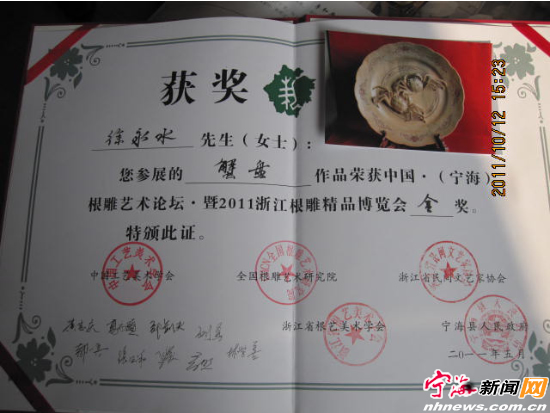 获奖
徐永水 先生（女士）：
您参展的 蟹盘 作品荣获中国·（宁海）
根雕艺术论坛·暨2011浙江根雕精品博览会 金 奖。
特颁此证。
中国工艺美术学会 全国根雕艺术研究院 浙江省民间文艺家协会
浙江省根艺美术学会 宁海县人民政府
二〇一一年五月
2011/10/12 15:23
宁海新闻网
nhnews.com.cn